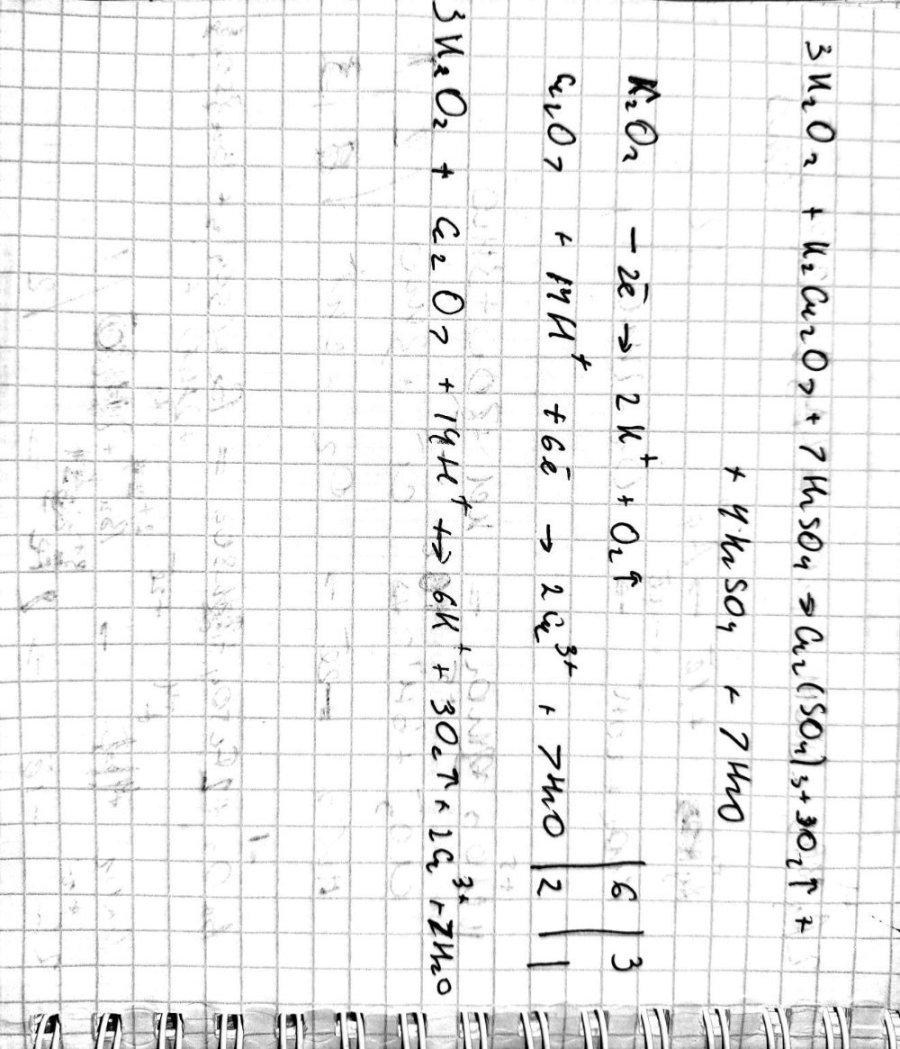 3K₂O₂ + K₂Cr₂O₇ + 7H₂SO₄ → Cr₂(SO₄)₃ + 3O₂↑ +
+ 4K₂SO₄ + 7H₂O
K₂O₂ − 2ē → 2K⁺ + O₂↑ | 6 | 3
Cr₂O₇ + 14H⁺ + 6ē → 2Cr³⁺ + 7H₂O | 2 | 1
3K₂O₂ + Cr₂O₇ + 14H⁺ → 6K⁺ + 3O₂↑ + 2Cr³⁺ + 7H₂O